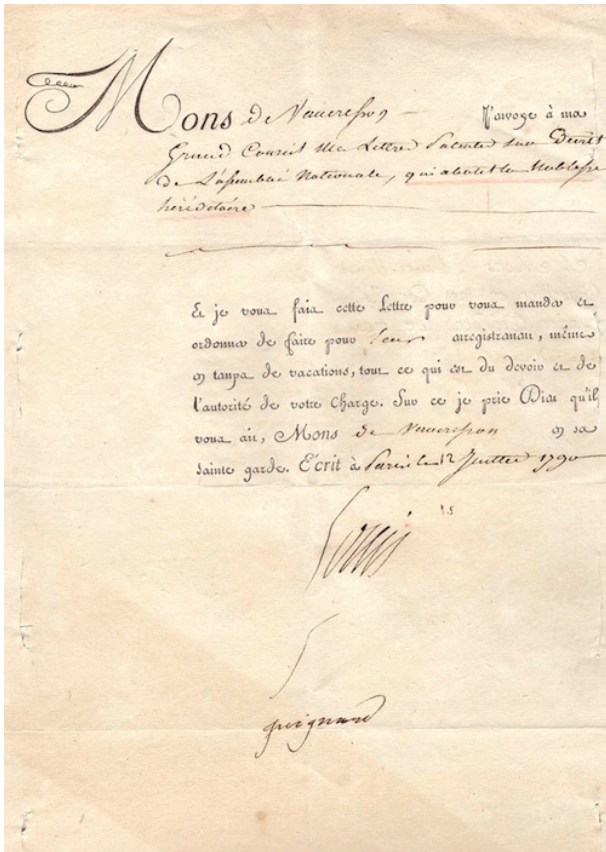 Mons de Vaucresson — J'envoye à ma
Grand Conseil mes Lettres Patentes sur Décret
de L'assemblée Nationale, qui abolit la Noblesse
héréditaire
Et je vous fais cette Lettre pour vous mander et
ordonner de faire pour leur enregistrement, même
en temps de vacations, tout ce qui est du devoir et de
l'autorité de votre Charge. Sur ce je prie Dieu qu'il
vous ait, Mons de Vaucresson en sa
sainte garde. Écrit à Paris le 12 Juillet 1790
Louis
guignard